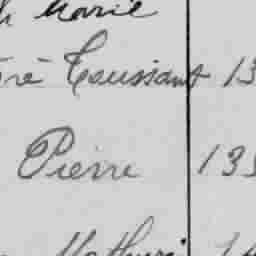 h Marie
ré Toussant 13
Pierre 13
Mathuri 1